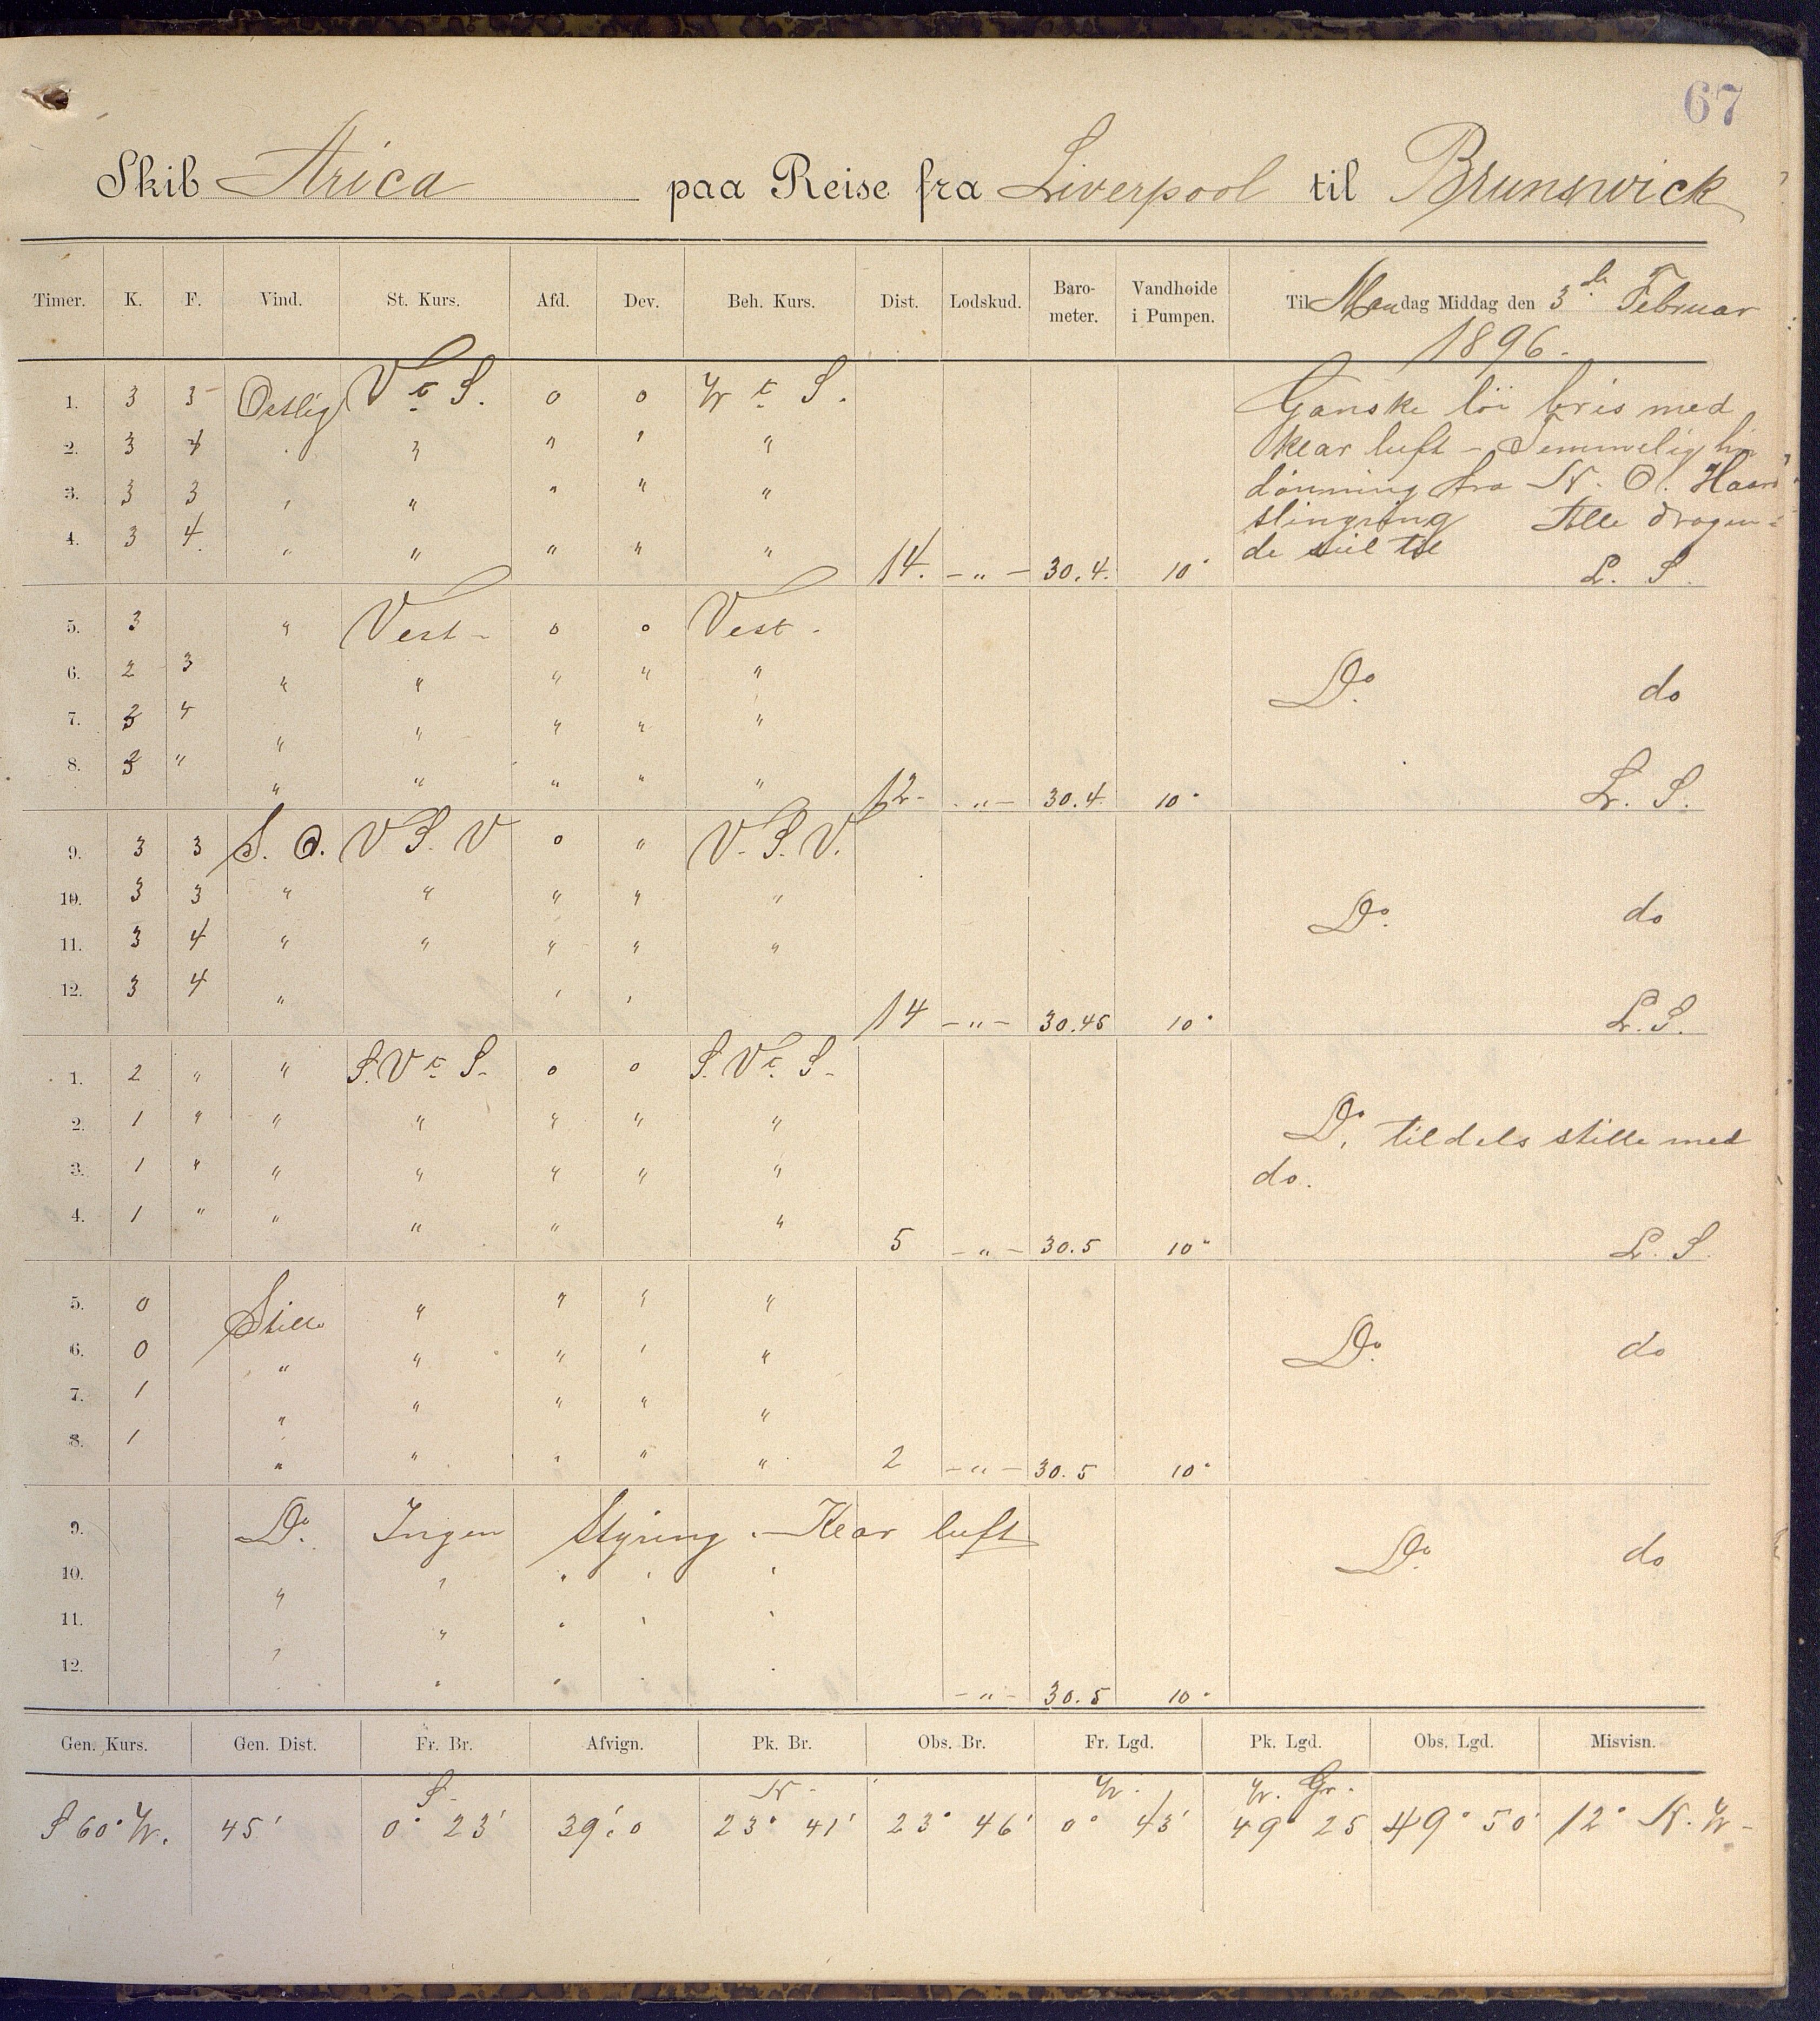 67
Skib Arica paa Reise fra Liverpool til Brunswick
Timer. K. F. Vind. St. Kurs. Afd. Dev. Beh. Kurs. Dist. Lodskud. Baro-meter. Vandhøide i Pumpen. Til Mandag Middag den 3de Februar
1896.
1. 3 3 Ostlig V t S. 0 0 W t S. Ganske löi bris med
2. 3 4 " " " " klar luft – Temmelig
3. 3 3 " " " " " dönning fra N. O. Haard
4. 3 4 " " " " " slingring Alle dragen-
de seil til
14. – " – 30.4. 10" L. S.
5. 3 " Vest – 0 0 Vest.
6. 2 3 " " " " " Do. do
7. 3 4 " " " " "
8. 3 " " " " " " 12 – " – 30.4. 10" L. S.
9. 3 3 S. O. V S. V 0 " V. S. V.
10. 3 3 " " " " " Do. do
11. 3 4 " " " " "
12. 3 4 " " " 14 – " – 30.45 10" L. S.
1. 2 " " S. V t S. 0 0 S. V t S.
2. 1 " " " " " " Do. tildels stille med
3. 1 " " " " " " do.
4. 1 " " " " " 5 – " – 30.5 10" L. S.
5. 0 Stille " " " "
6. 0 " " " " " Do. do
7. 1 " " " " "
8. 1 " " " " " 2 – " – 30.5 10"
9. Do. Ingen Styring. – Klar luft Do. do
10. " " " " "
11. " " " "
12. " " " – " – 30.5 10"
Gen. Kurs. Gen. Dist. Fr. Br. Afvign. Pk. Br. Obs. Br. Fr. Lgd. Pk. Lgd. Obs. Lgd. Misvisn.
S. N. W. W. Gr.
S 60° W. 45' 0° 23' 39'.0 23° 41' 23° 46' 0° 43' 49° 25 49° 50' 12° N. W.